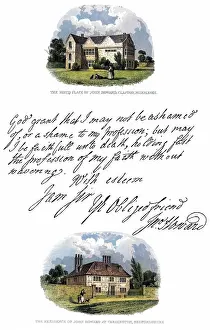 THE BIRTH PLACE OF JOHN HOWARD, CLAPTON, MIDDLESEX.
God grant that I may not be ashamed
of, or a shame to, my profession; but may
I be faithfull unto death, holding fast
the profession of my faith without
wavering.
With esteem
I am Sir
Yr Obliged friend
Jno Howard
THE RESIDENCE OF JOHN HOWARD AT CARDINGTON, BEDFORDSHIRE